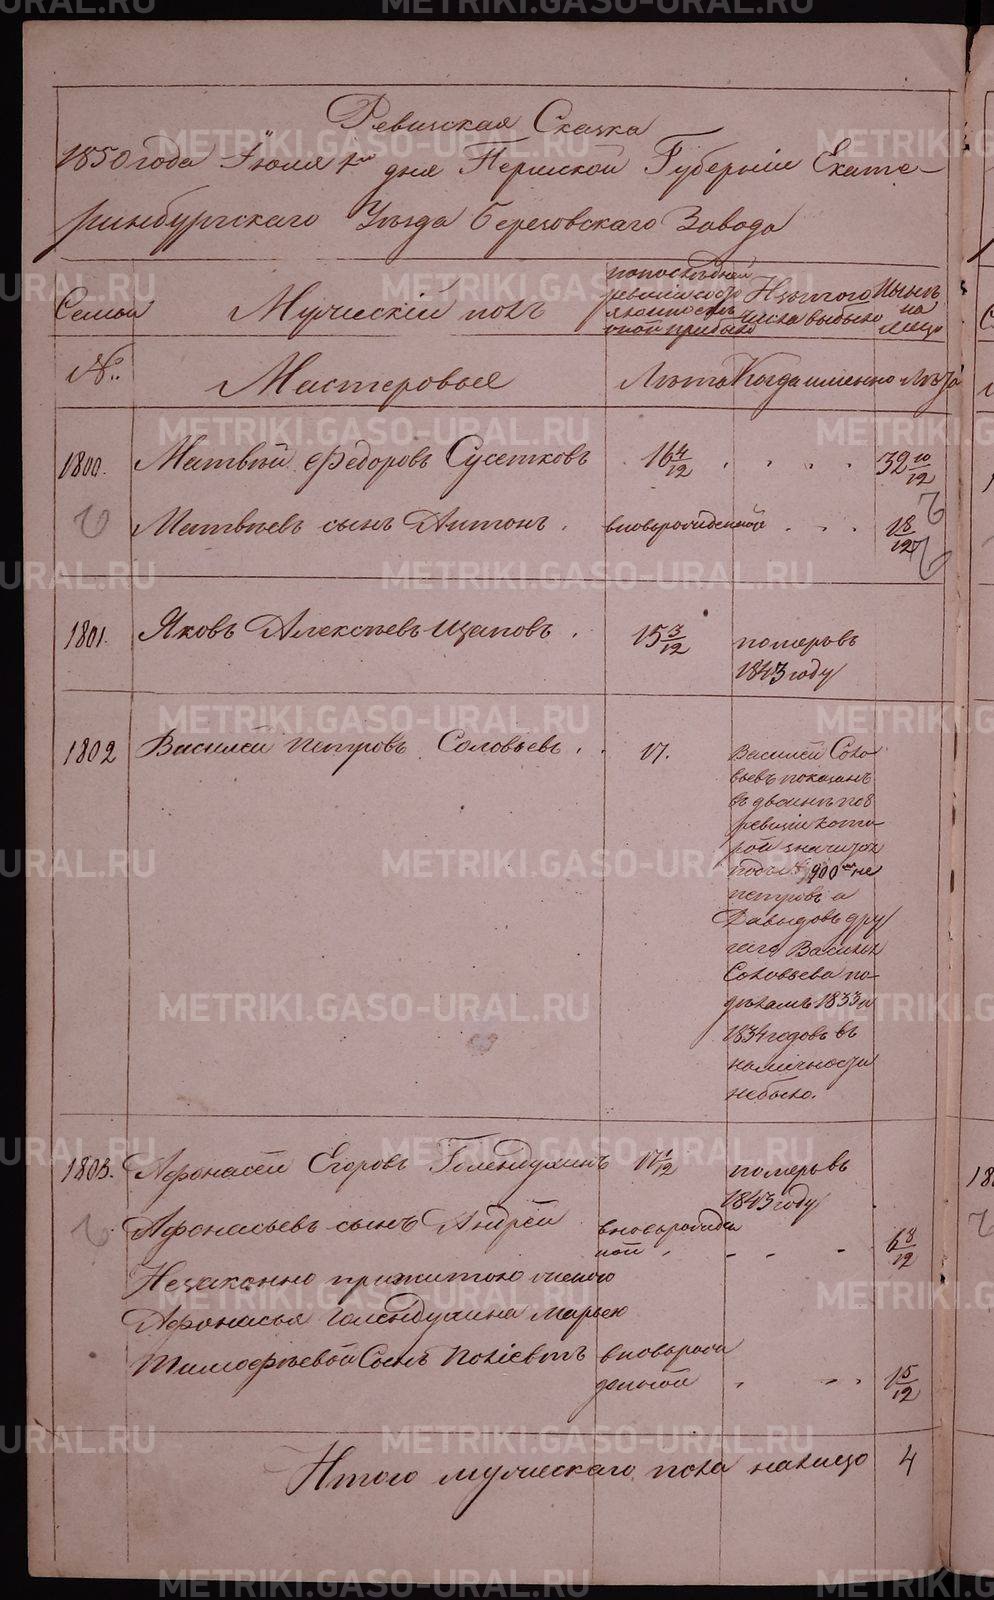 Ревизская Сказка
1850 года Июля 1го дня Пермской Губернiи Екате-
ринбургскаго Уѣзда Березовскаго Завода
Семьи
Мужескiй полъ
попоследней
ревизiи состо
яло и послѣ
оной прибыло
Изътого
числа выбыло
Нынѣ
на
лицо
№
Мастеровые
Лѣта
Когда именно
Лѣта
1800.
Матвѣй Ѳедоровъ Сусетковъ
16 4/12
32 10/12
Матвѣевъ сынъ Антонъ.
вновьрожденный
1 8/12
1801.
Яковъ Алексѣевъ Щаповъ.
15 3/12
померъ въ
1843 году
1802
Василей Петровъ Соловьевъ.
17.
Василей Соло
вьевъ показанъ
въ двоинѣ по 8
ревизiи кото-
рой значится
подъ № 900мъ не
петровъ а
Давыдовъ дру
гаго Василья
Соловьева по-
дѣламъ 1833 и
1834 годовъ въ
наличности
небыло.
1803.
Афонасей Егоровъ Голендухинъ
17 1/12
померъ въ
1843 году
Афонасьевъ сынъ Андрей
вновьрожден
ной
6 8/12
Незаконно прижитою женою
Афонасья Голендухина Марьею
Тимофѣевой Сынъ Полiевктъ
вновьрож
денной
1 5/12
Итого мужескаго пола налицо
4
METRIKI.GASO-URAL.RU